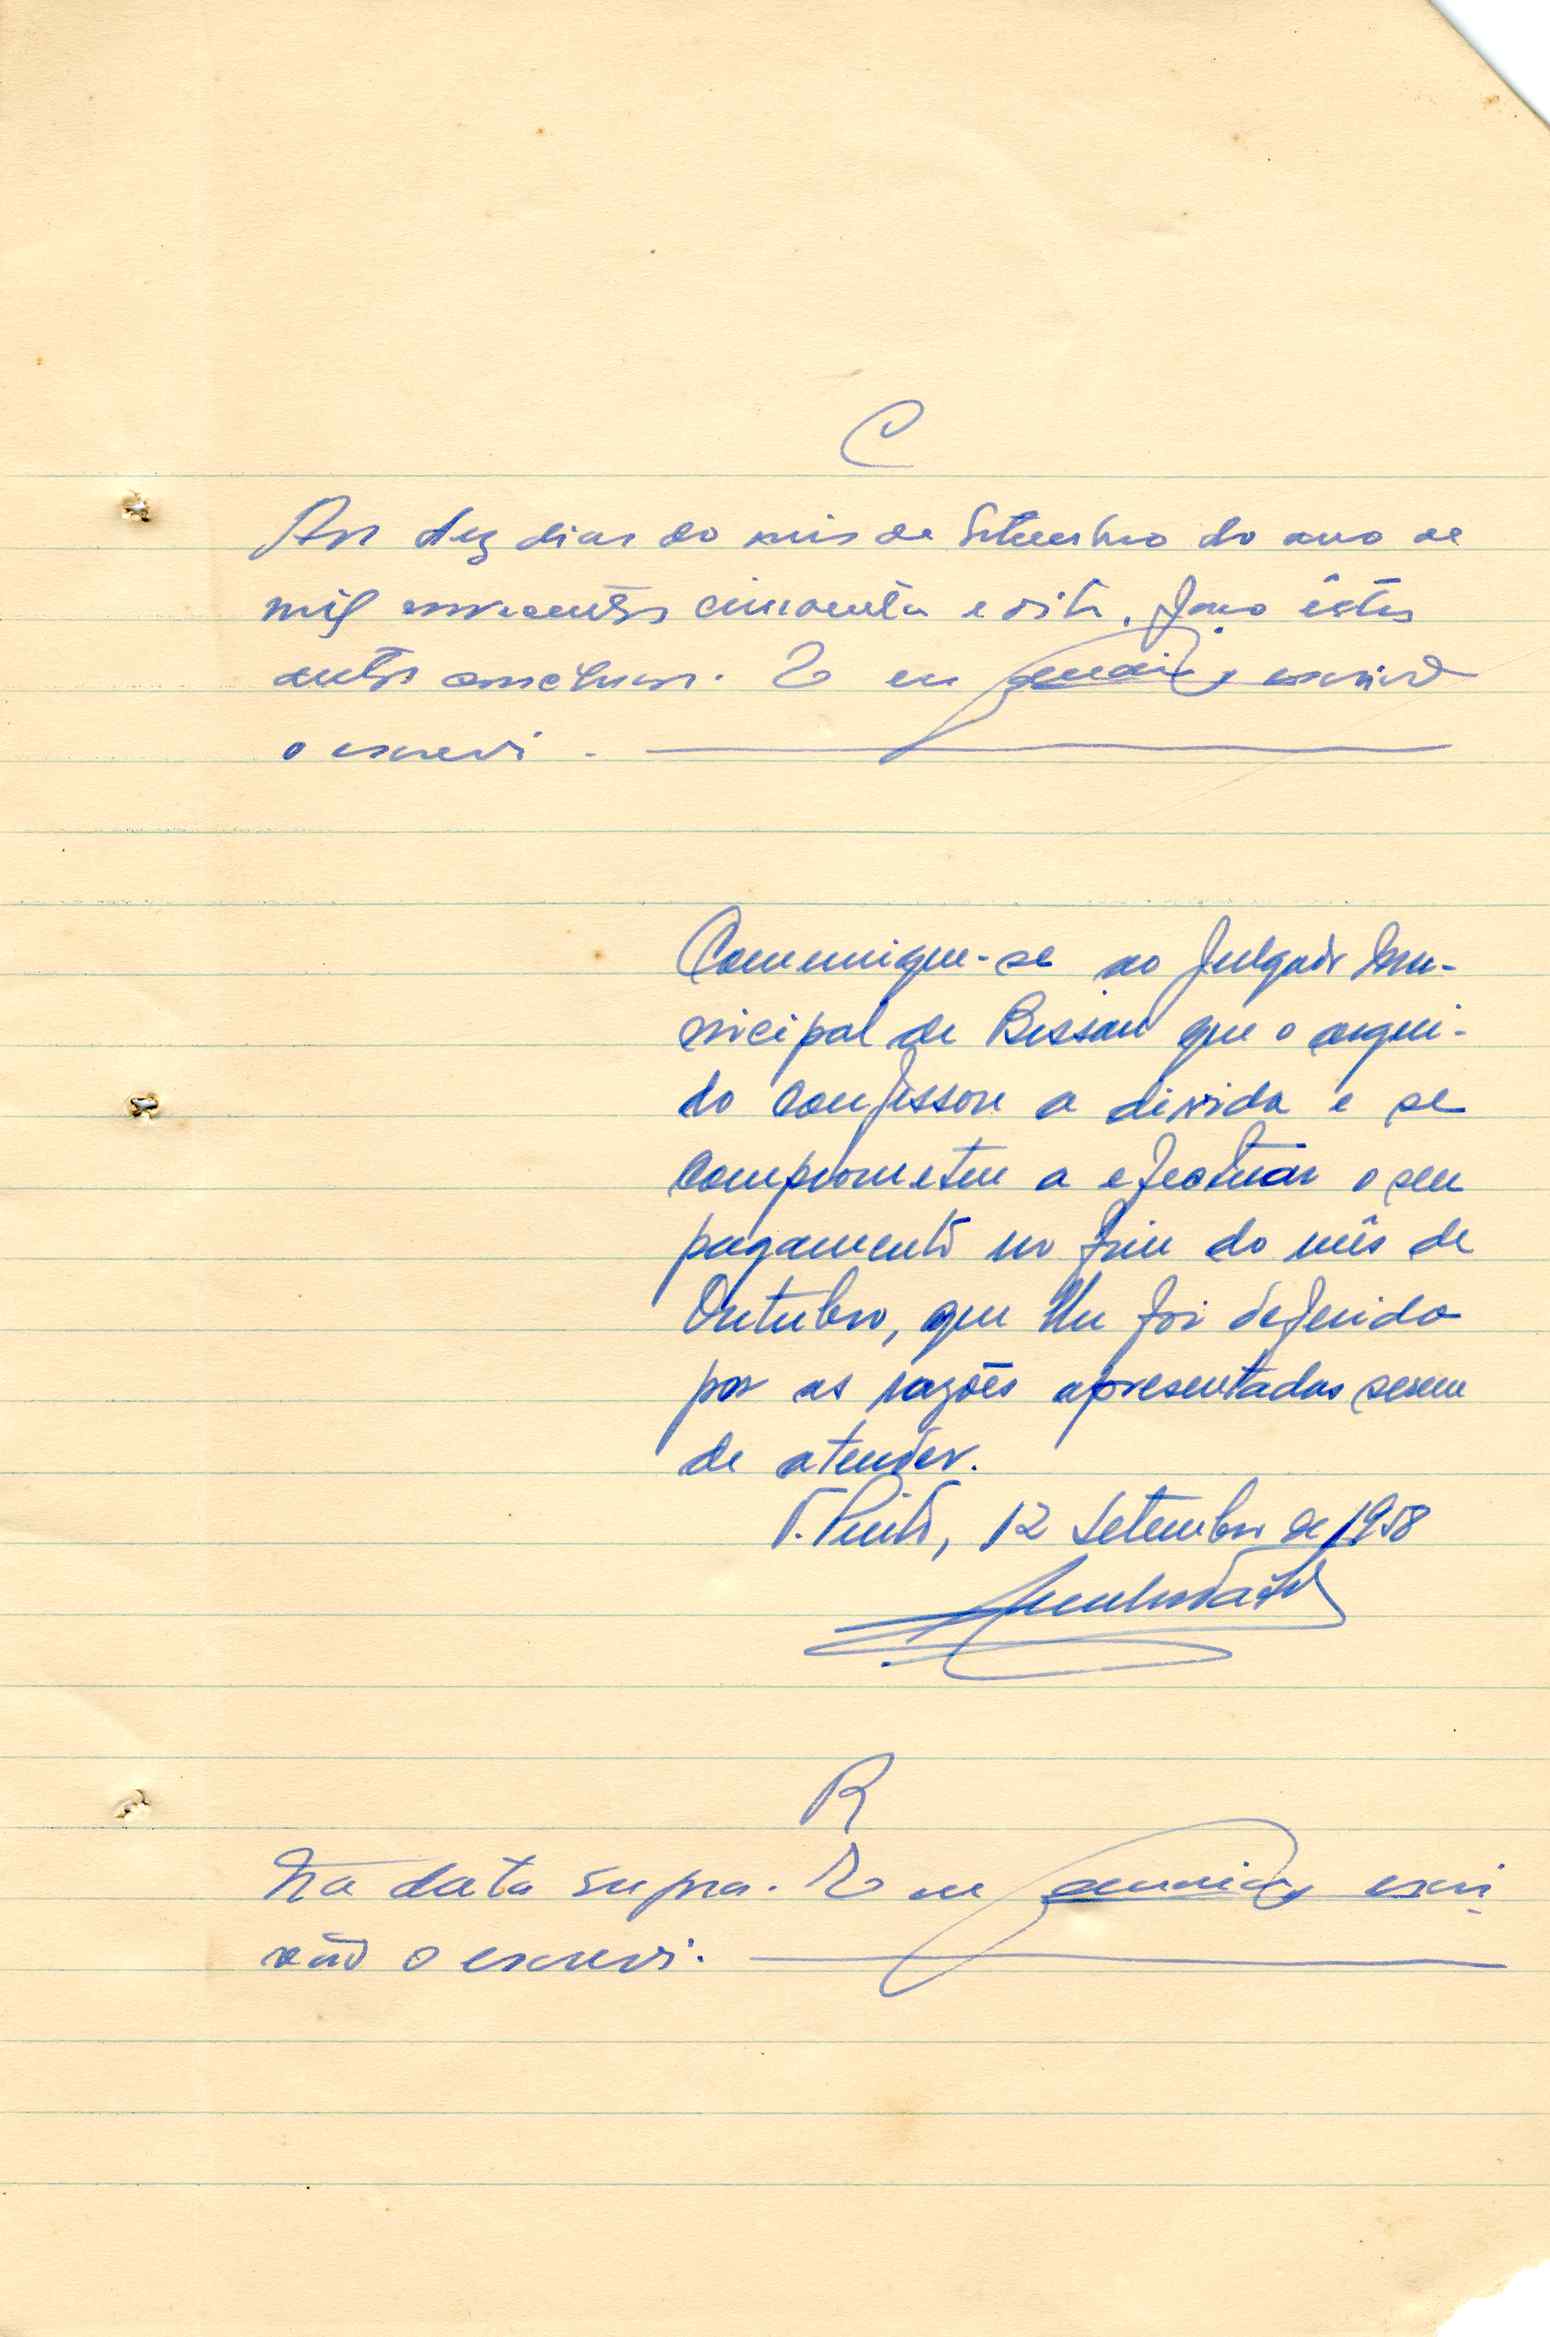 C
Aos dez dias do mês de Setembro do ano de
mil novecentos cincoenta e oito, faço êstes
autos conclusos. E eu escrivão
o escrevi.
Comunique-se ao Julgado Mu-
nicipal de Bissau que o argui-
do confessou a divida e se
comprometeu a efectuar o seu
pagamento no fim do mês de
Outubro, que lhe foi deferido
por as razões apresentadas serem
de atender.
T. Pinto, 12 Setembro de 1958
R
Na data supra. E eu escri-
vão o escrevi.